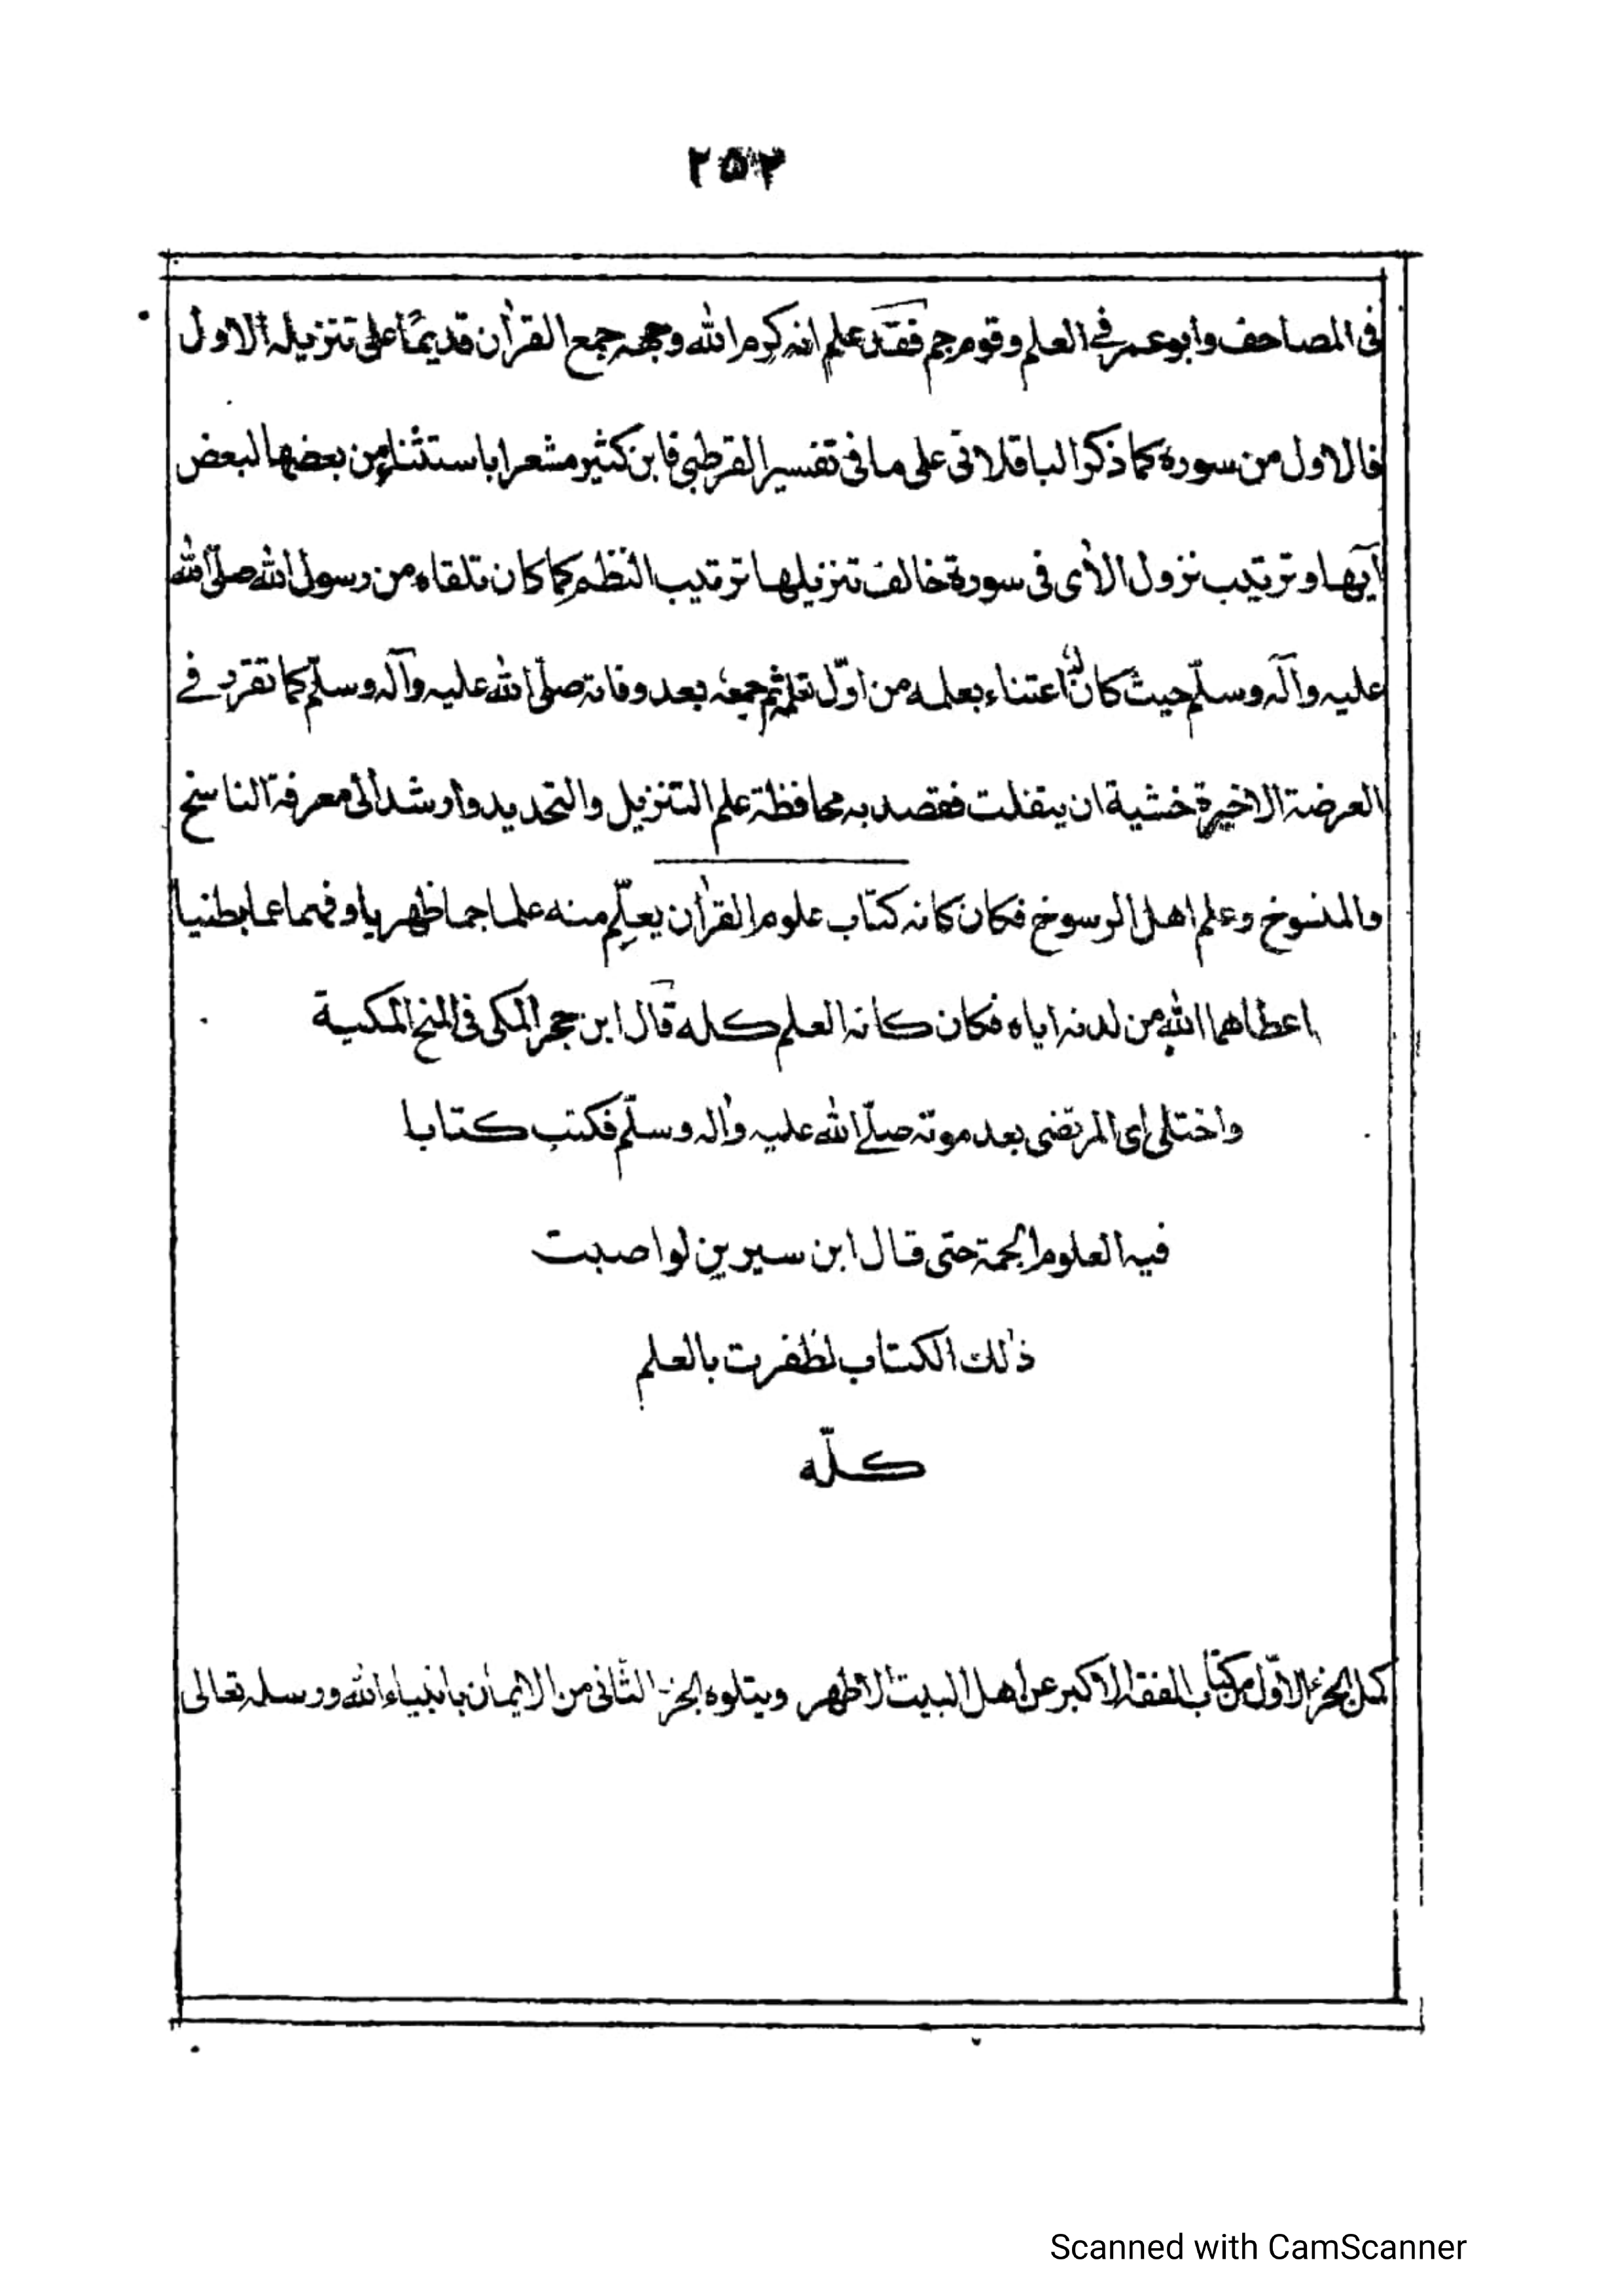 ٢٥٢
فى المصاحف وابو عمر فى العلم وقوم جم فقد علم انه كرم الله وجهه جمع القرآن قديمًا على تنزيله الاول
فالاول من سوره كما ذكر الباقلانى على ما فى تفسير القرطبى فابن كثير مشعرا باستثناء من بعضها لبعض
آيها وترتيب نزول الأى فى سورة خالف تنزيلها ترتيب النظم كما كان تلقاه من رسول الله صلى الله
عليه وآله وسلّم حيث كان اعتناء بعلمه من اوّل تعلمه ثم جمعه بعد وفاته صلّى الله عليه وآله وسلّم كما تقرر فے
العرضة الاخيرة خشية ان يتفلت فقصد به محافظة علم التنزيل والتحديد وارشد الى معرفة الناسخ
والمنسوخ وعلم اهل الرسوخ فكان كانه كتاب علوم القرآن يعلّم منه علما جما ظهريا وفهما عما بطنيا
اعطاهما الله من لدنه اياه فكان كانه العلم كله قال ابن حجر المكى فى المنح المكية
واختلى اى المرتضى بعد موته صلّے الله عليه واله وسلّم فكتب كتابا
فيه العلوم الجمة حتى قال ابن سيرين لو اصبت
ذلك الكتاب لظفرت بالعلم
كلّه
كمل الجزء الاوّل من كتاب الفقه الاكبر عن أهل البيت الاطهر ويتلوه الجزء الثانى من الايمان بانبياء الله ورسله تعالى
Scanned with CamScanner